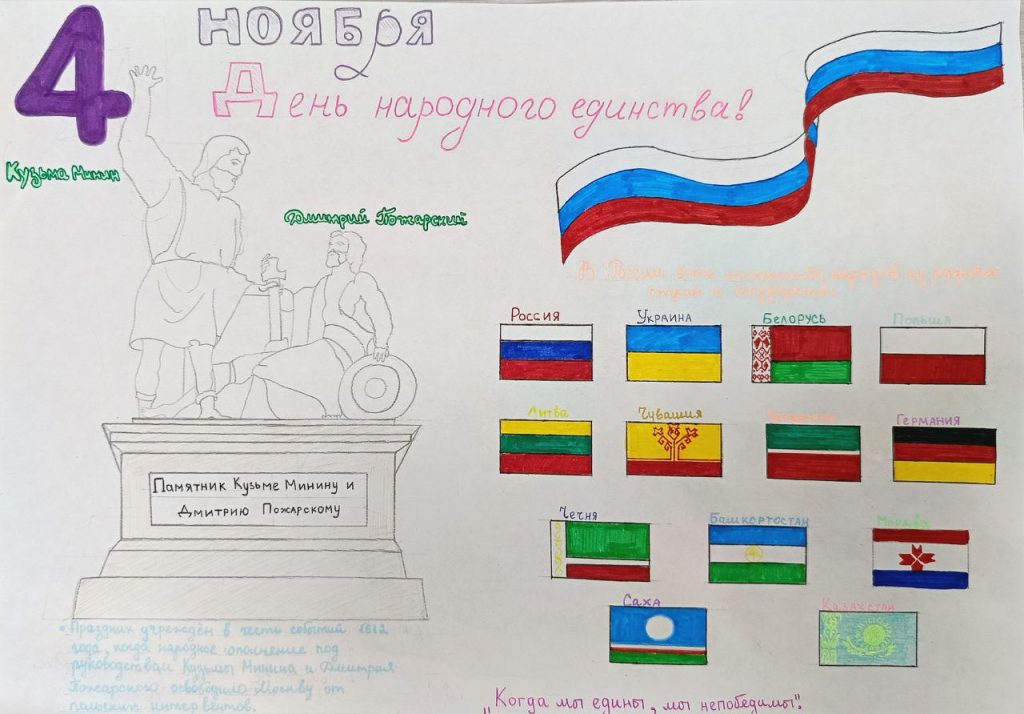 4 НОЯБРЯ
День народного единства!
Кузьма Минин
Дмитрий Пожарский
В России
стран и государств.
Россия Украина Белорусь Польша
Литва Чувашия Германия
Чечня Башкортостан
Саха Казахстан
Памятник Кузьме Минину и
Дмитрию Пожарскому
• Праздник учреждён в честь событий 1612
года, когда народное ополчение под
руководством Кузьмы Минина и Дмитрия
Пожарского освободило Москву от
польских интервентов.
„Когда мы едины, мы непобедимы".